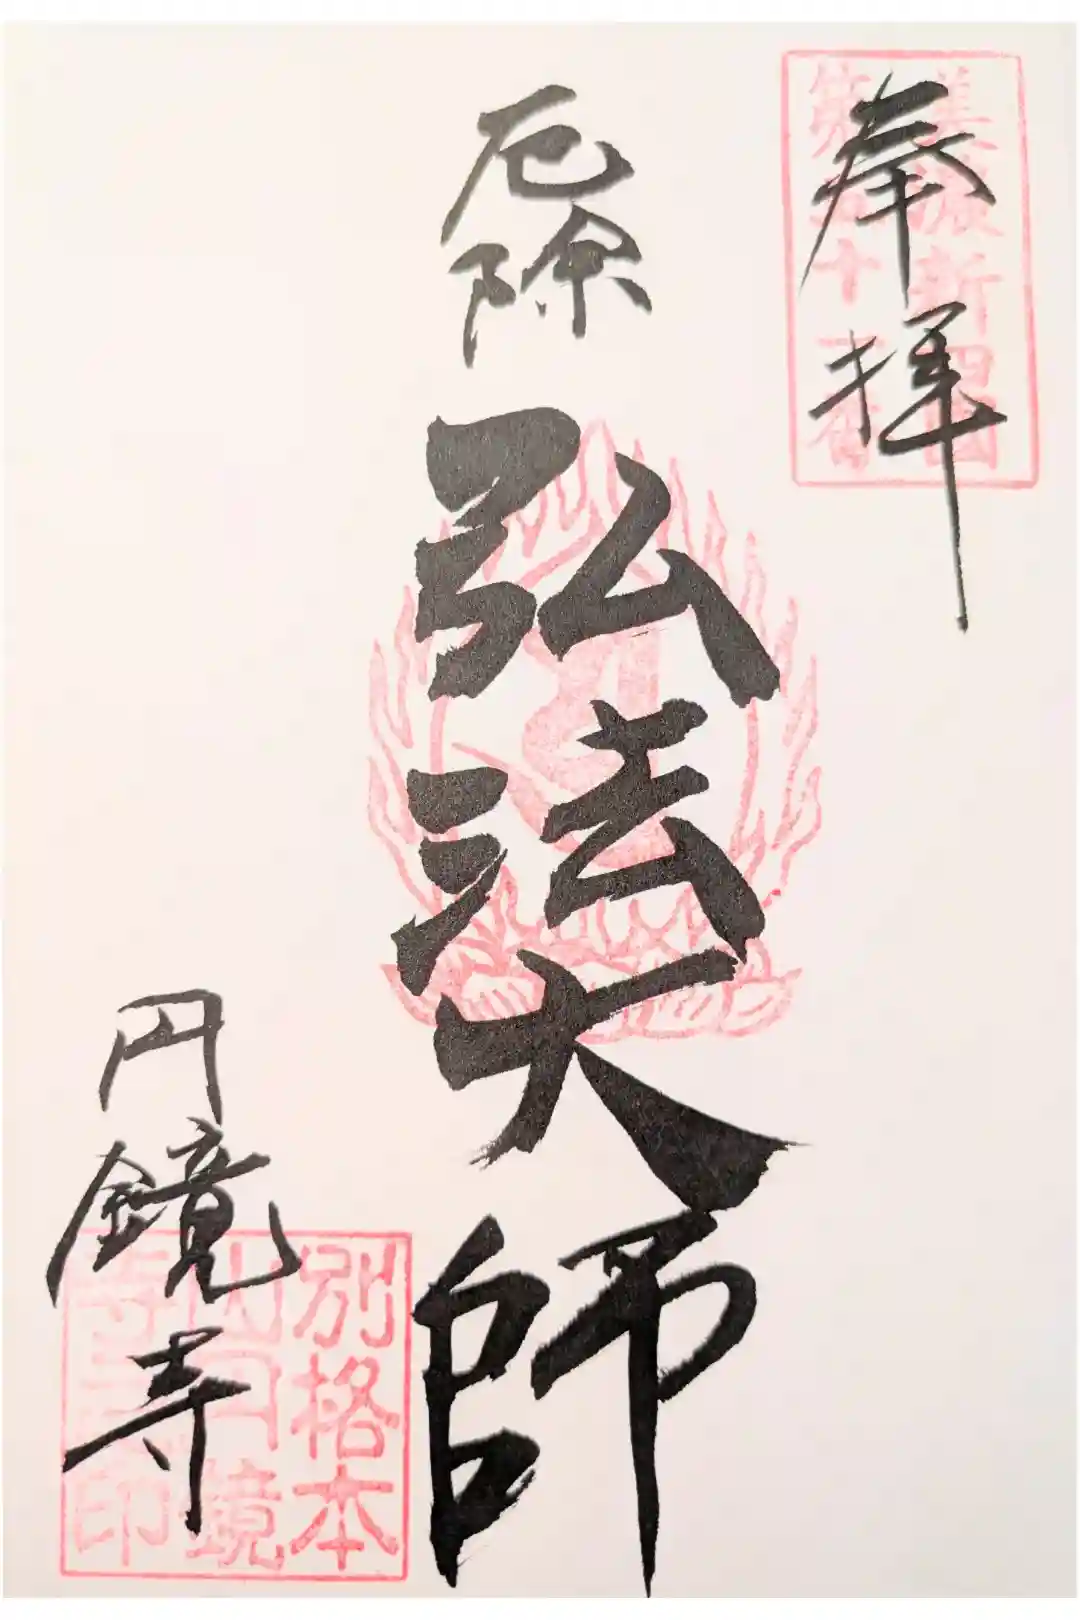 美濃新四国
奉拝
厄除
弘法大師
円鏡寺
別格本
山円鏡
寺之印